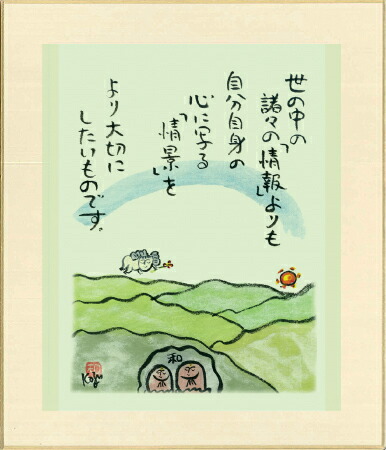 世の中の
諸々の「情報」よりも
自分自身の
心に写る
「情景」を
より大切に
したいものです。
和